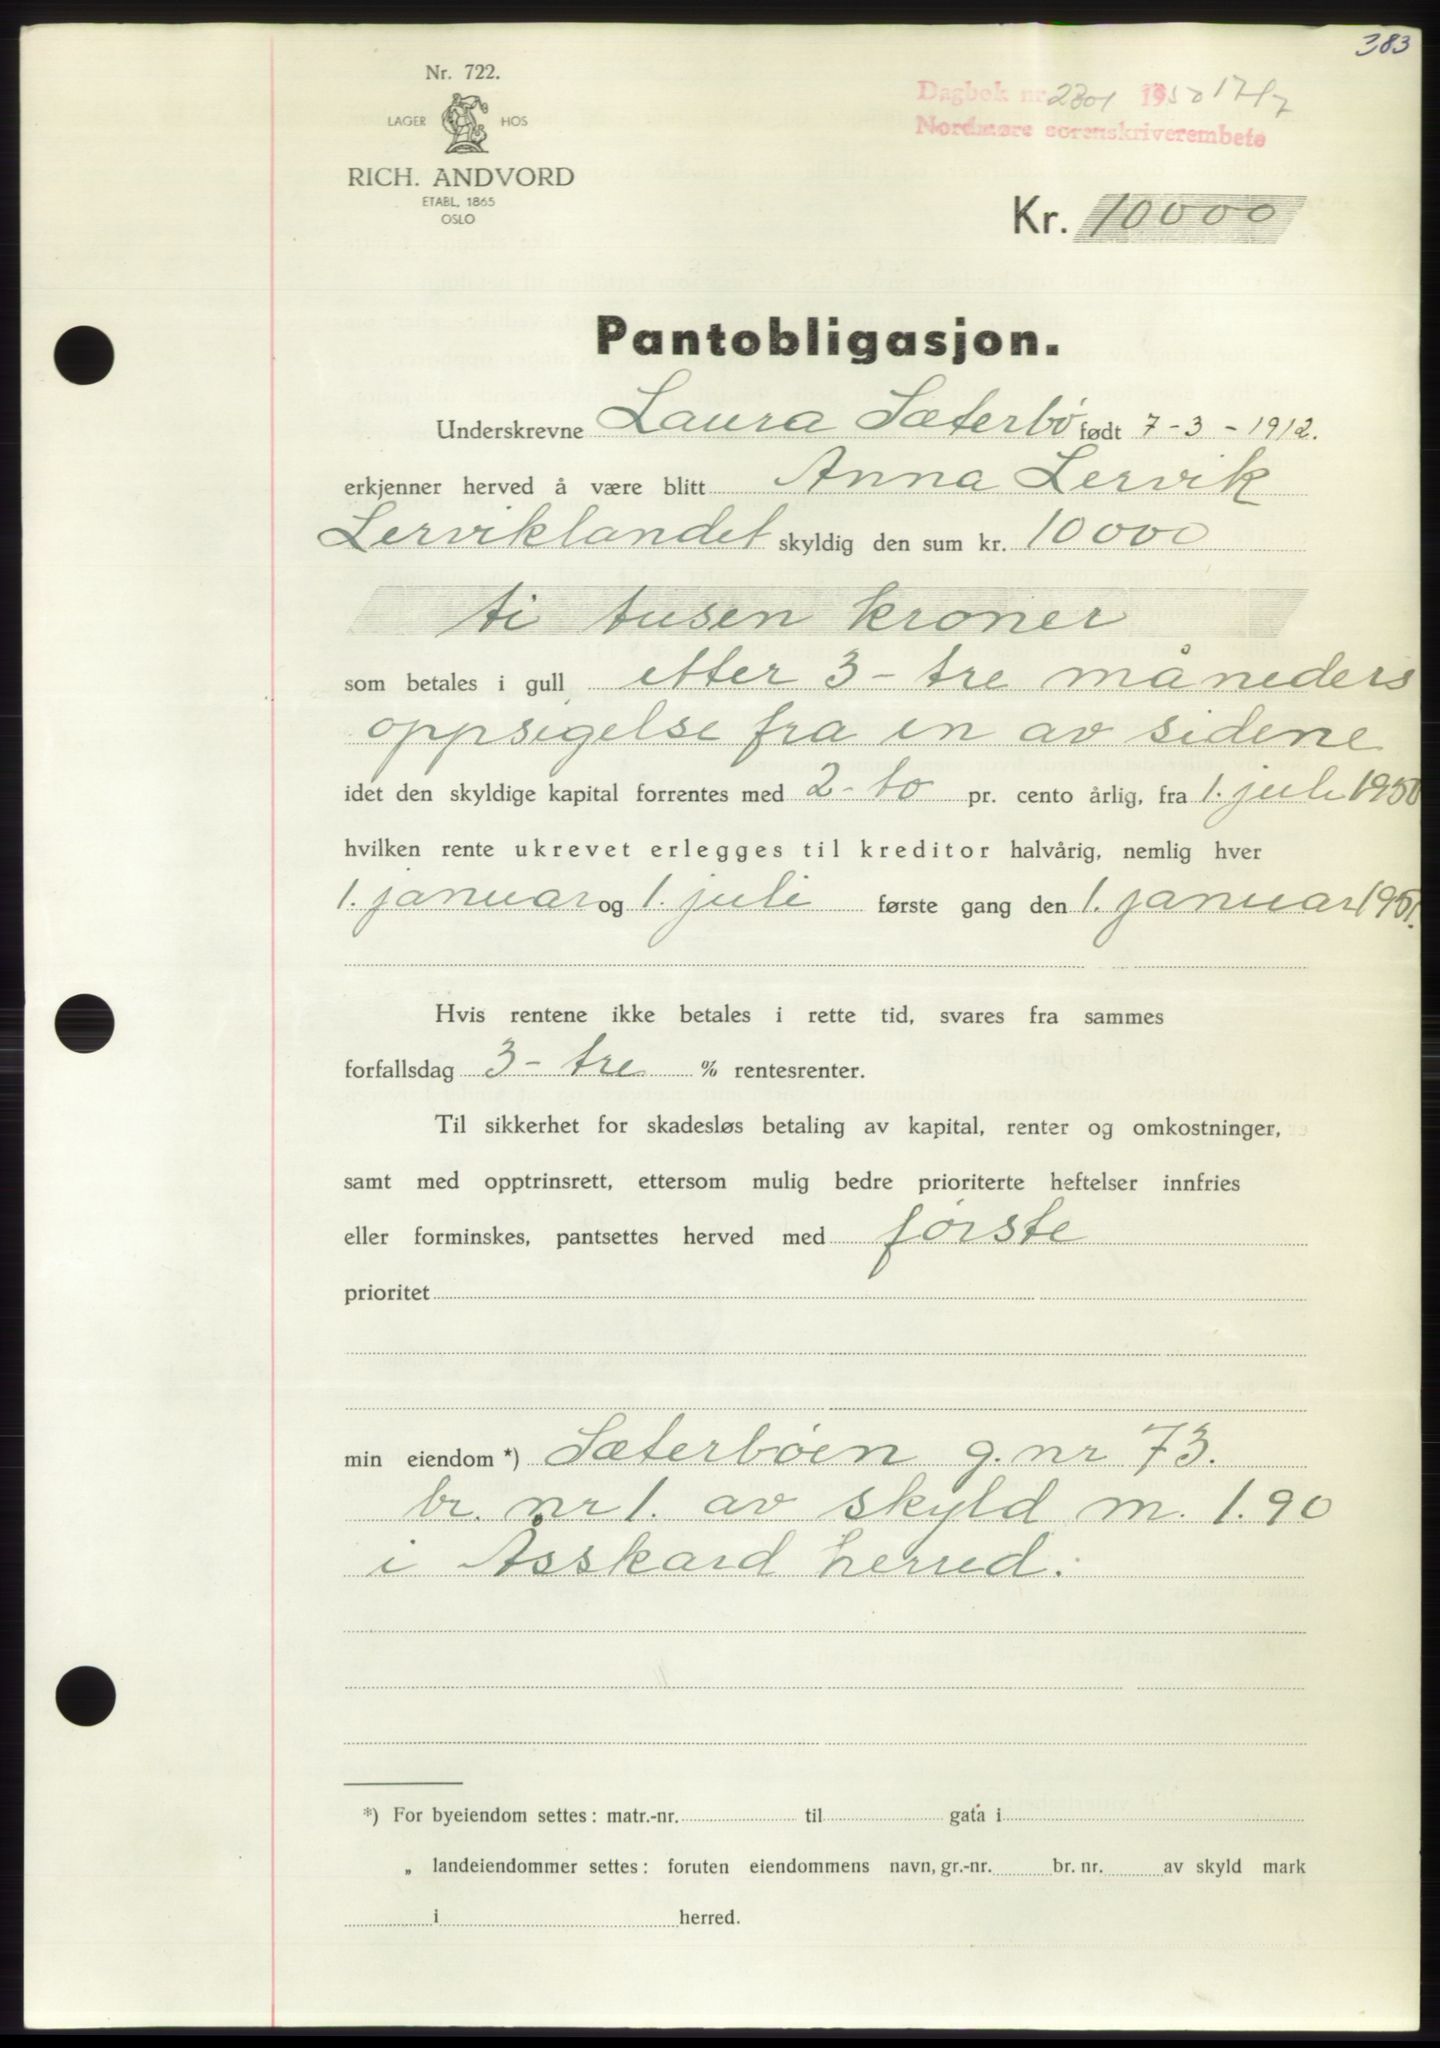 383
Nr. 722.
LAGER HOS
RICH. ANDVORD
ETABL. 1865
OSLO
Dagbok nr. 2301 1950 17/7
Nordmøre sorenskriverembete
Kr. 10000
Pantobligasjon.
Underskrevne Laura Sæterbø født 7-3-1912.
erkjenner herved å være blitt Anna Lervik
Lerviklandet skyldig den sum kr. 10000
ti tusen kroner
som betales i gull etter 3 - tre måneders
oppsigelse fra en av sidene
idet den skyldige kapital forrentes med 2 - to pr. cento årlig, fra 1. juli 1950
hvilken rente ukrevet erlegges til kreditor halvårig, nemlig hver
1. januar og 1. juli første gang den 1. januar 1951.
Hvis rentene ikke betales i rette tid, svares fra sammes
forfallsdag 3 - tre % rentesrenter.
Til sikkerhet for skadesløs betaling av kapital, renter og omkostninger,
samt med opptrinsrett, ettersom mulig bedre prioriterte heftelser innfries
eller forminskes, pantsettes herved med første
prioritet
min eiendom *) Sæterbøen g. nr 73.
br. nr 1. av skyld m. 1.90
i Åsskard herred.
*) For byeiendom settes: matr.-nr. til gata i
„ landeiendommer settes: foruten eiendommens navn, gr.-nr. br. nr. av skyld mark
i herred.